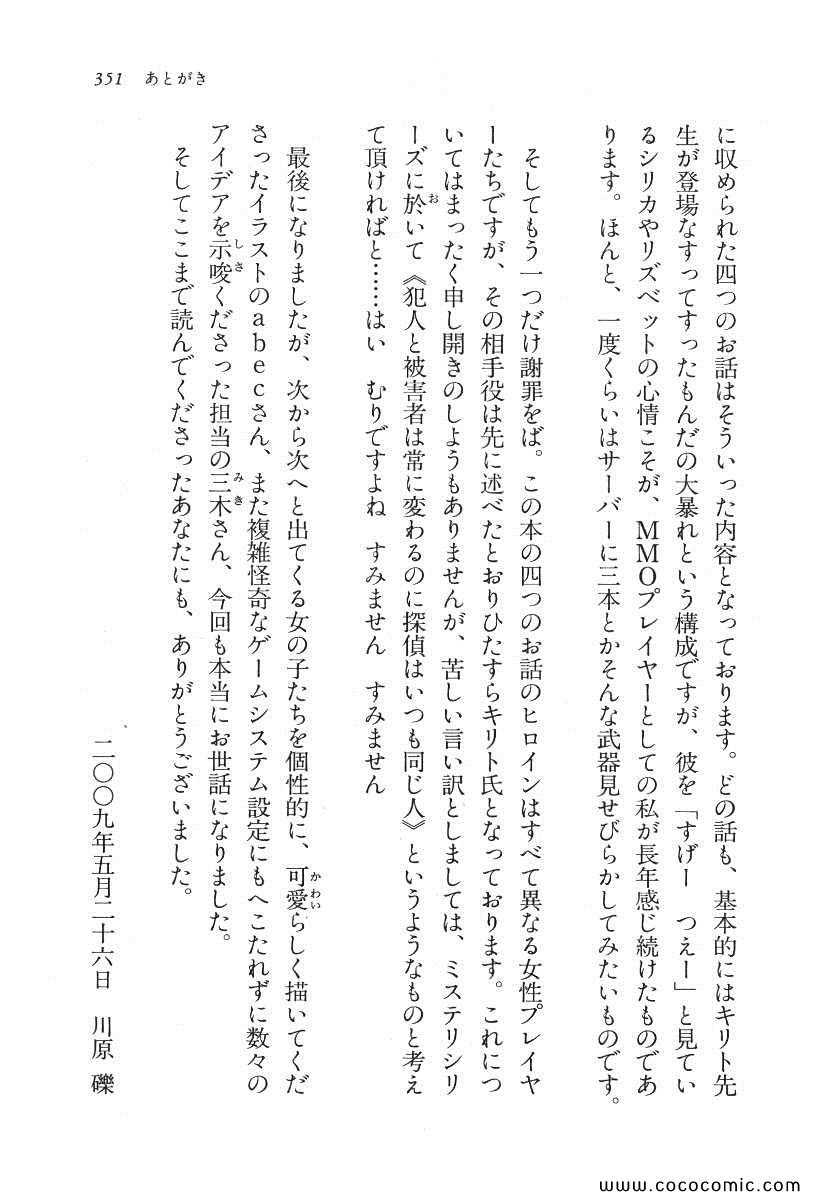 351 あとがき
に収められた四つのお話はそういった内容となっております。どの話も、基本的にはキリト先
生が登場なすってすったもんだの大暴れという構成ですが、彼を「すげー　つえー」と見てい
るシリカやリズベットの心情こそが、MMOプレイヤーとしての私が長年感じ続けたものであ
ります。ほんと、一度くらいはサーバーに三本とかそんな武器見せびらかしてみたいものです。
そしてもう一つだけ謝罪をば。この本の四つのお話のヒロインはすべて異なる女性プレイヤ
ーたちですが、その相手役は先に述べたとおりひたすらキリト氏となっております。これにつ
いてはまったく申し開きのしようもありませんが、苦しい言い訳としましては、ミステリシリ
ーズに於いて《犯人と被害者は常に変わるのに探偵はいつも同じ人》というようなものと考え
て頂ければと……はい　むりですよね　すみません　すみません
最後になりましたが、次から次へと出てくる女の子たちを個性的に、可愛らしく描いてくだ
さったイラストのabecさん、また複雑怪奇なゲームシステム設定にもへこたれずに数々の
アイデアを示唆くださった担当の三木さん、今回も本当にお世話になりました。
そしてここまで読んでくださったあなたにも、ありがとうございました。
二〇〇九年五月二十六日　川原 礫
www.cococomic.com